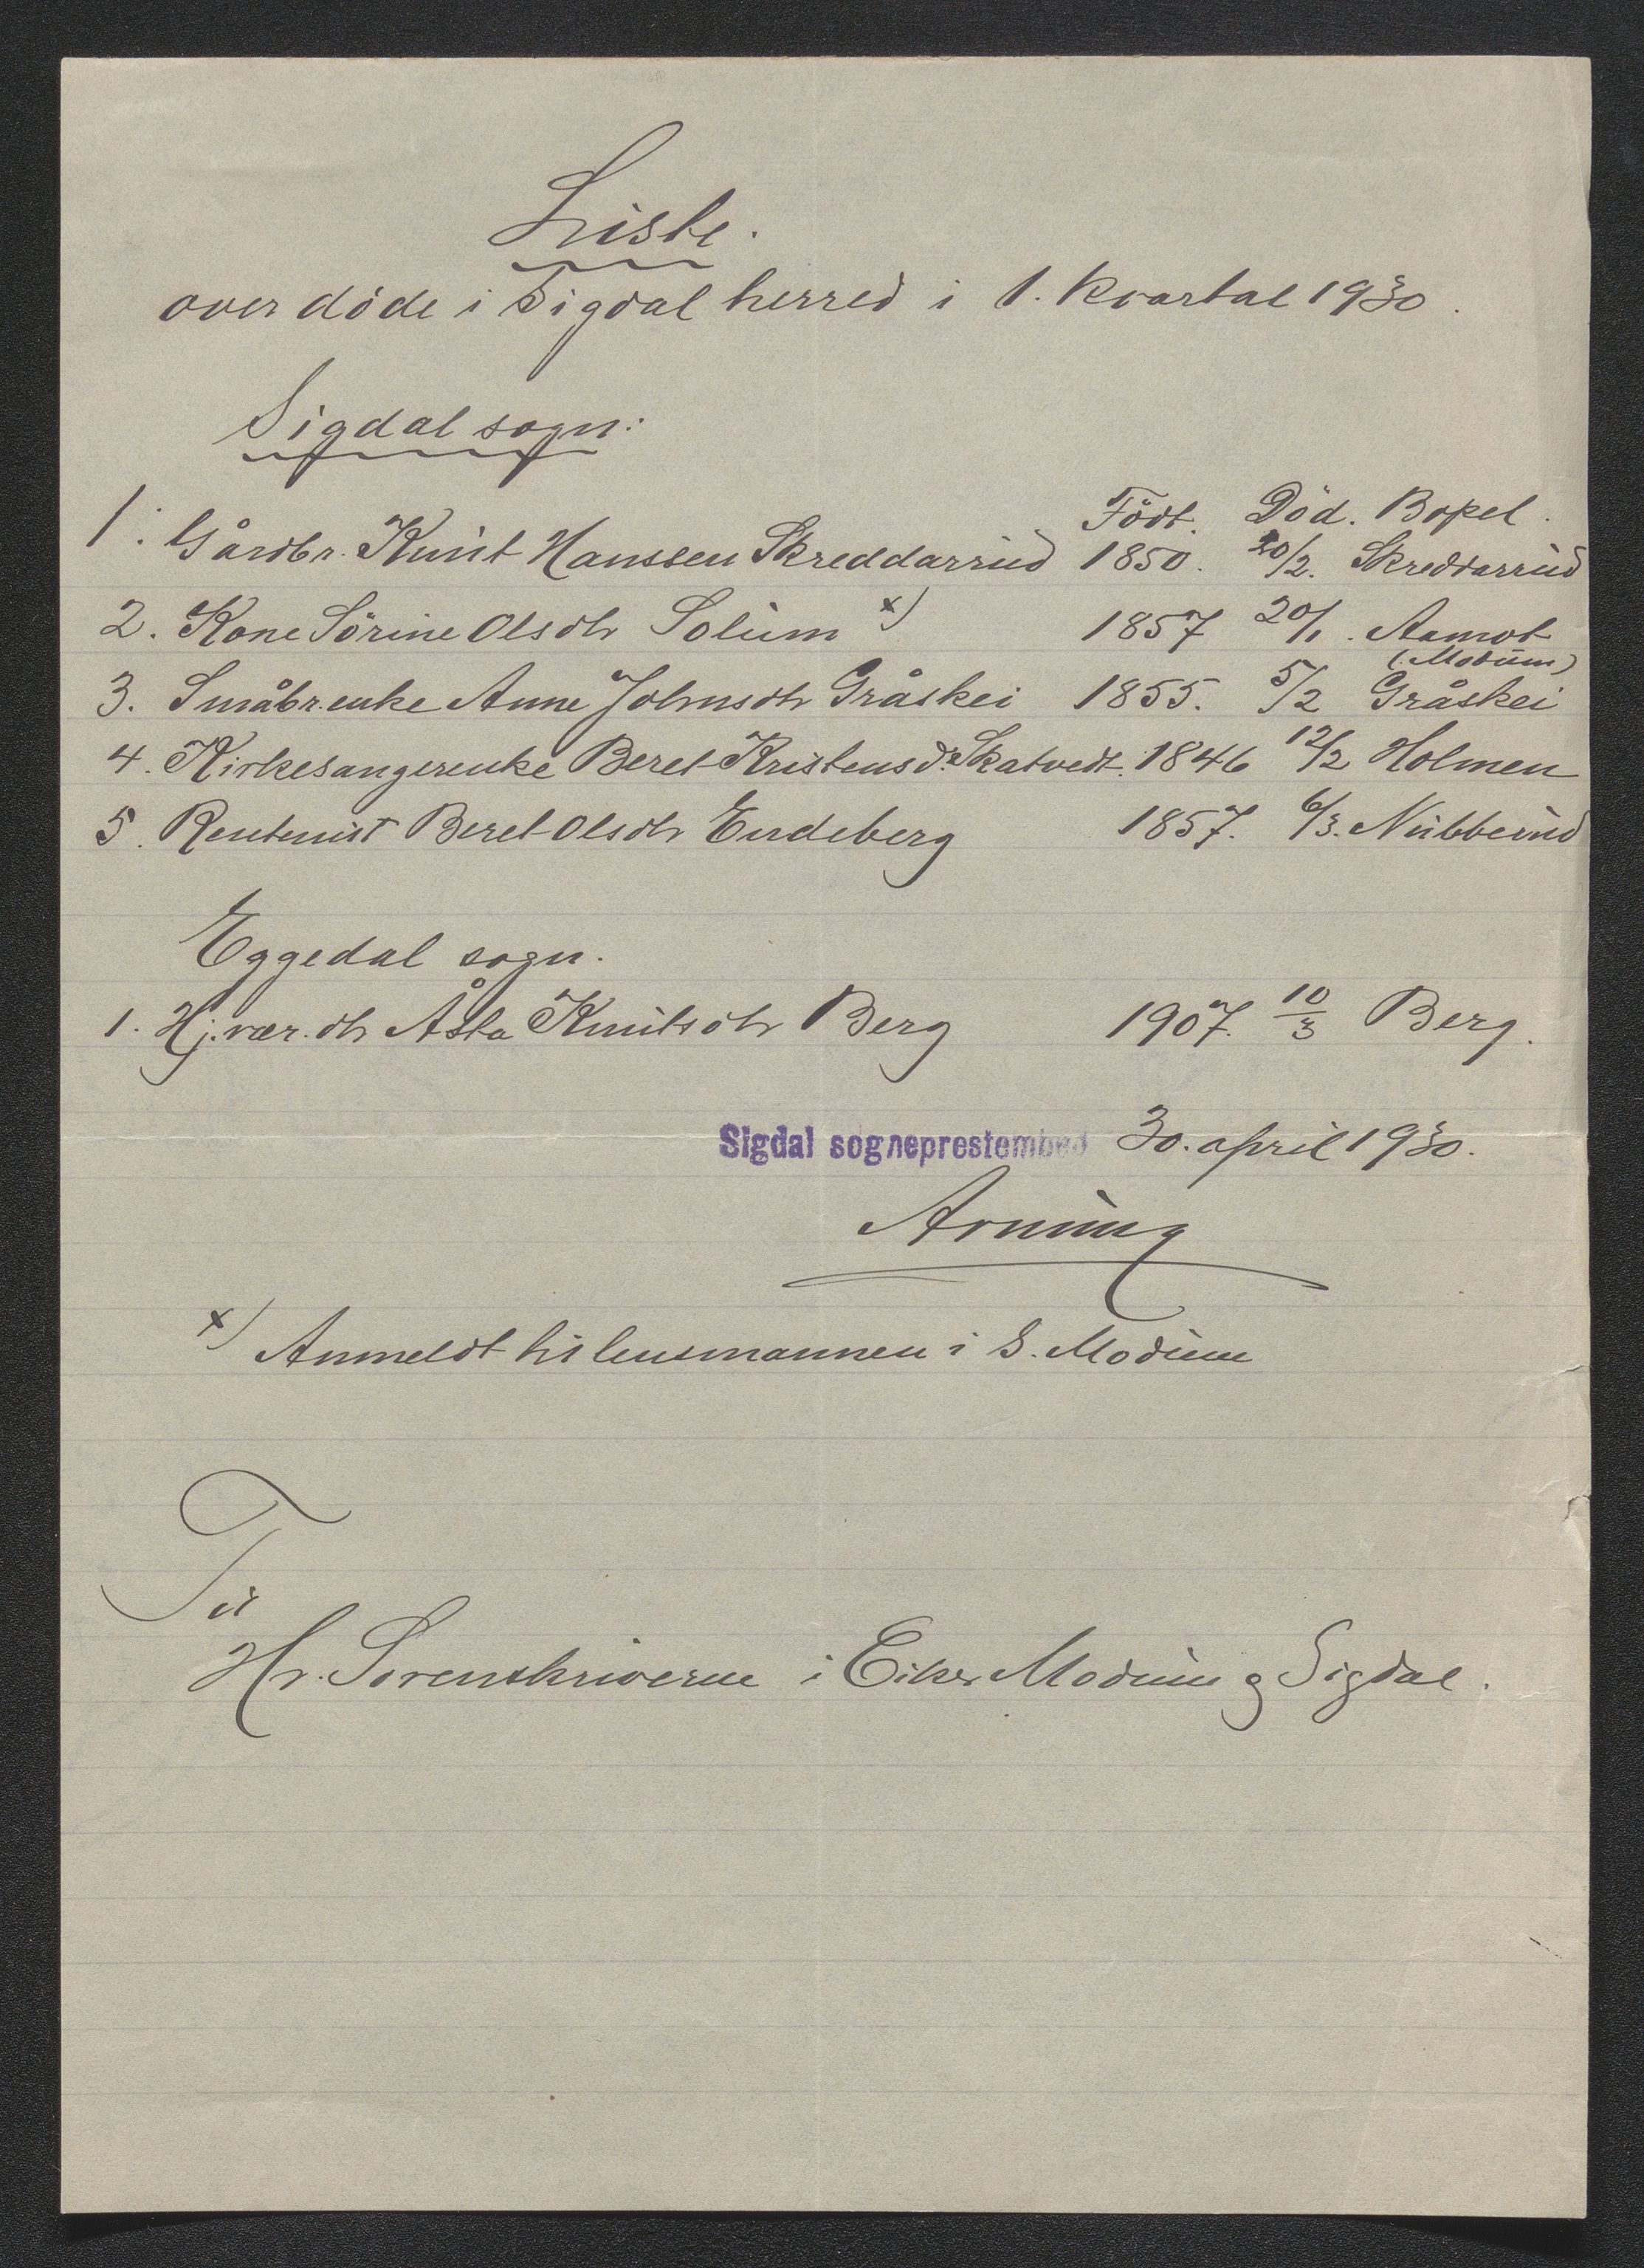 Liste.
over døde i Sigdal herred i 1. kvartal 1930.
Sigdal sogn:
Født. Död. Bopel.
1. Gårdbr. Knut Hanssen Skreddarrud 1850. 20/2. Skreddarrud
2. Kone Sörine Olsdtr Solum x) 1857 20/1. Aamot
(Modum)
3. Småbr.enke Anne Johnsdtr Gråskei 1855. 5/2 Gråskei
4. Kirkesangerenke Beret Kristensd. Skatvedt. 1846 12/2 Holmen
5. Rentenist Beret Olsdtr Endeberg 1857. 6/3. Nubberud
Eggedal sogn.
1. Hj.vær. dtr Åsta Knutsdtr Berg 1907. 10/3 Berg.
Sigdal sogneprestembed 30. april 1930.
Arnung
x) Anmeldt til lensmannen i S. Modum
Til
Hr. Sorenskriveren i Eiker Modum og Sigdal.